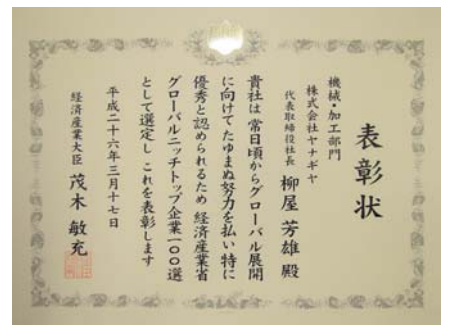 表彰状
機械・加工部門
株式会社ヤナギヤ
代表取締役社長 柳屋 芳雄 殿
貴社は 常日頃からグローバル展開
に向けてたゆまぬ努力を払い特に
優秀と認められるため 経済産業省
グローバルニッチトップ企業一〇〇選
として選定し これを表彰します
平成二十六年三月十七日
経済産業大臣 茂木 敏充